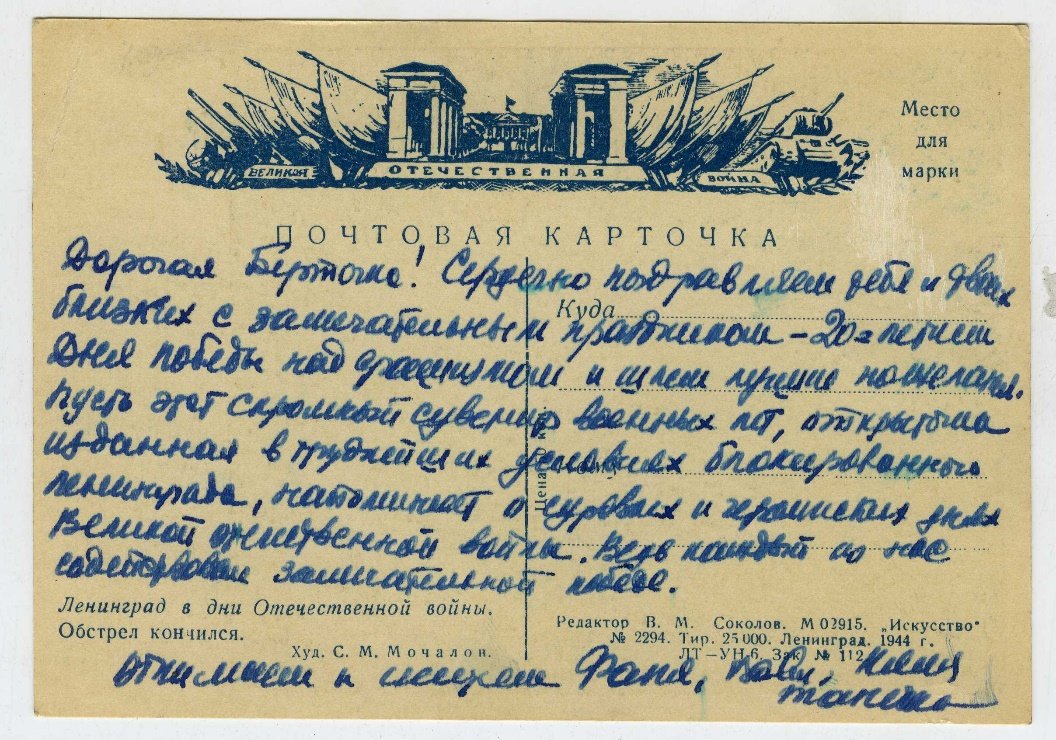 ВЕЛИКАЯ ОТЕЧЕСТВЕННАЯ ВОЙНА
Место
для
марки
ПОЧТОВАЯ КАРТОЧКА
Дорогая Берточка! Сердечно поздравляем тебя и твоих
близких с замечательным праздником – 20=летием
Дня победы над фашизмом и шлем лучшие пожелания.
Пусть этот скромный сувенир военных лет, открытка
изданная в труднейших условиях блокированного
Ленинграда, напоминает о суровых и героических днях
Великой отечественной войны. Ведь каждый из нас
содействовал замечательной победе.
Куда
Цена
Ленинград в дни Отечественной войны.
Обстрел кончился.
Худ. С. М. Мочалов.
Редактор В. М. Соколов. М 02915. „Искусство"
№ 2294. Тир. 25 000. Ленинград, 1944 г.
ЛТ—УН-6. Зак. № 112
Обнимаем и целуем Фаня,